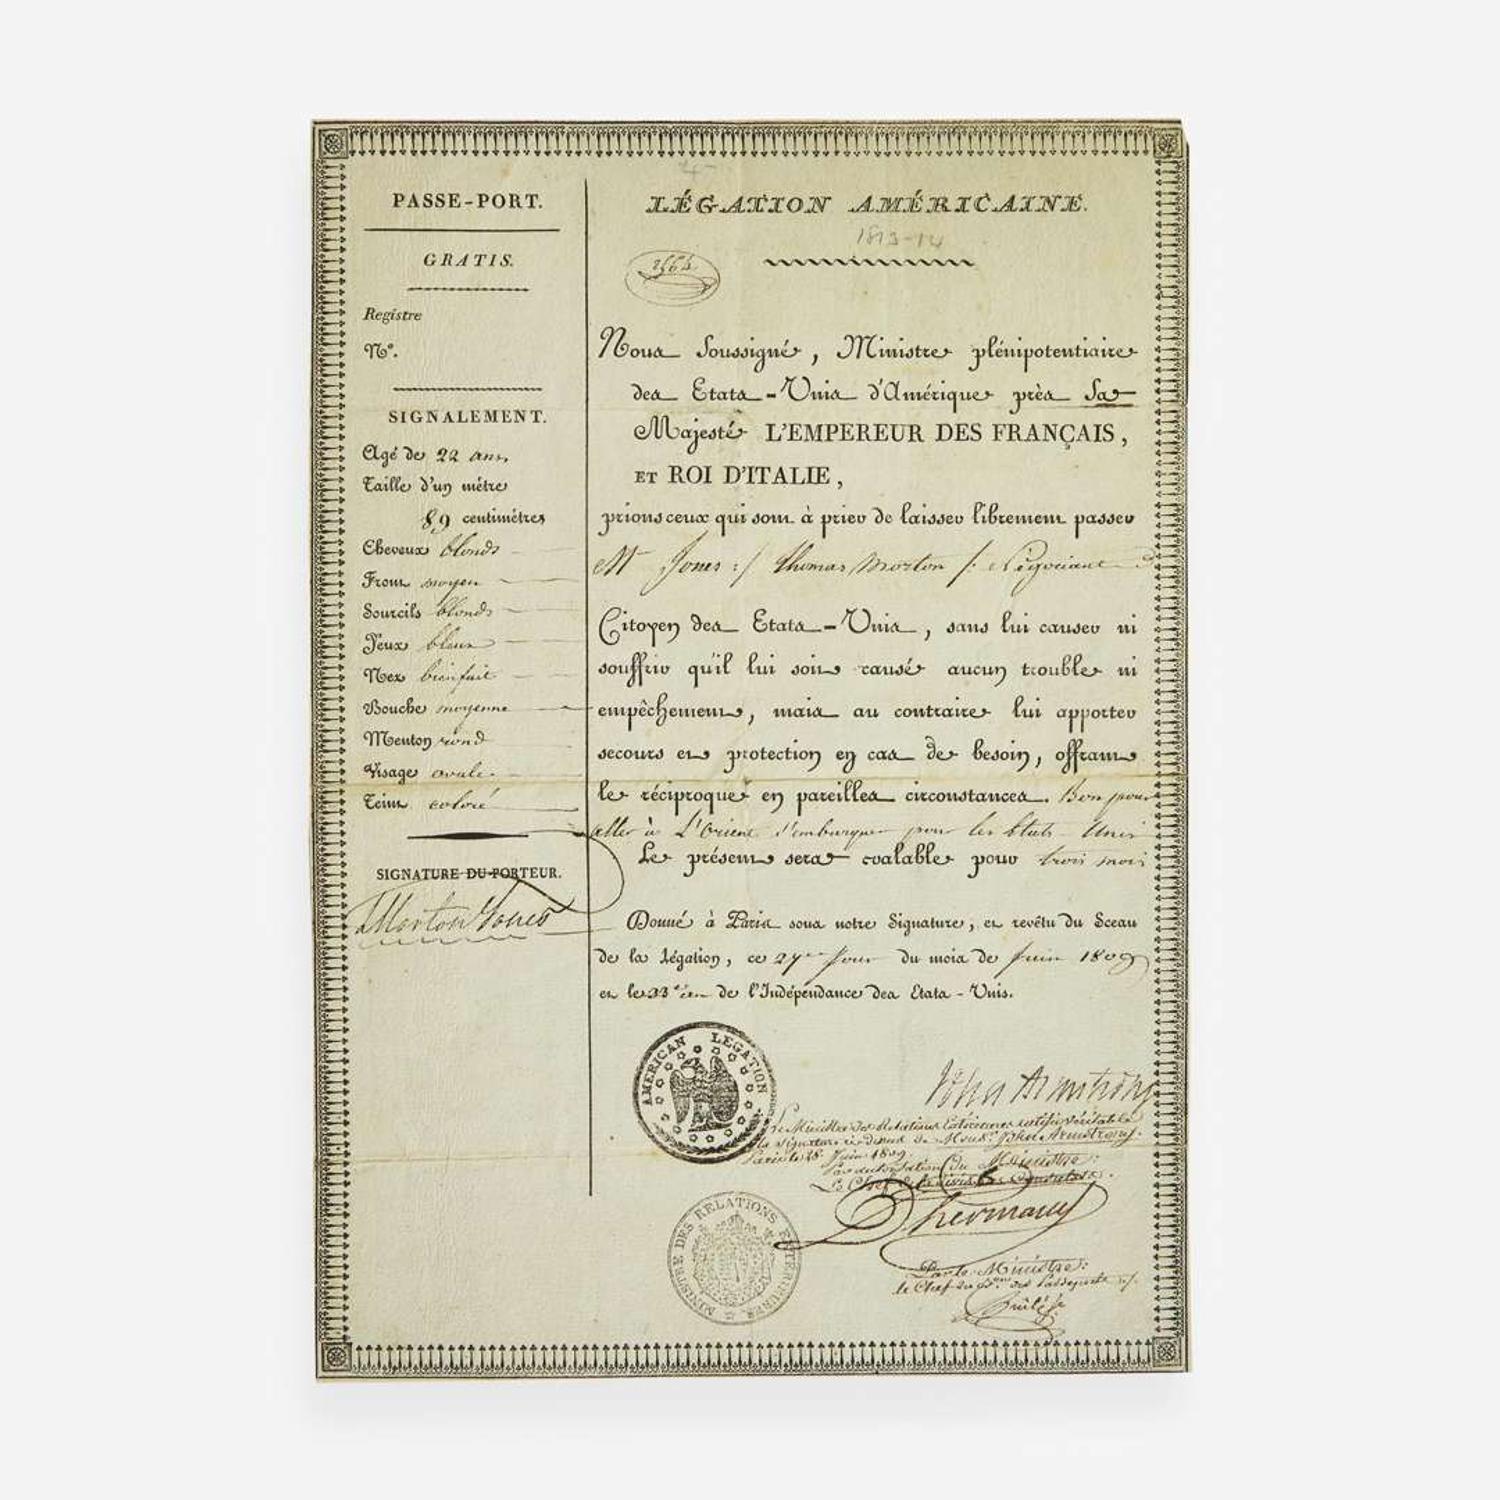 PASSE-PORT.
GRATIS.
Registre
N°.
SIGNALEMENT.
Agé de 22 ans,
Taille d'un mètre
89 centimètres
Cheveux blonds
Front moyen
Sourcils blonds
Yeux bleus
Nez bienfait
Bouche moyenne
Menton rond
Visage ovale
Teint coloré
SIGNATURE DU PORTEUR.
Morton Jones
LÉGATION AMÉRICAINE.
1813-14
2564
Nous Soussigné, Ministre plénipotentiaire
des Etats-Unis d'Amérique près Sa
Majesté L'EMPEREUR DES FRANÇAIS,
ET ROI D'ITALIE,
prions ceux qui sont à prier de laisser librement passer
Mr Jones :/ Thomas Morton /: Négociant
Citoyen des Etats-Unis, sans lui causer ni
souffrir qu'il lui soit causé aucun trouble ni
empêchement, mais au contraire lui apporter
secours et protection en cas de besoin, offrant
le réciproque en pareilles circonstances. Bon pour
aller à L'Orient s'embarquer pour les Etats-Unis
Le présent sera valable pour trois mois
Donné à Paris sous notre Signature, et revêtu du Sceau
de la Légation, ce 27me Jour du mois de Juin 1809
et le 33e an de l'Indépendance des Etats-Unis.
AMERICAN LEGATION
John Armstrong
Le Ministre des Relations Extérieures certifie véritable
la signature ci-dessus de Monsr. John Armstrong.
Paris le 28 Juin 1809
Par autorisation du Ministre:
Le Chef de la division des Consulats.
D'hermany
MINISTRE DES RELATIONS EXTERIEURES.
Par le Ministre:
le Chef du Bau des Passeports